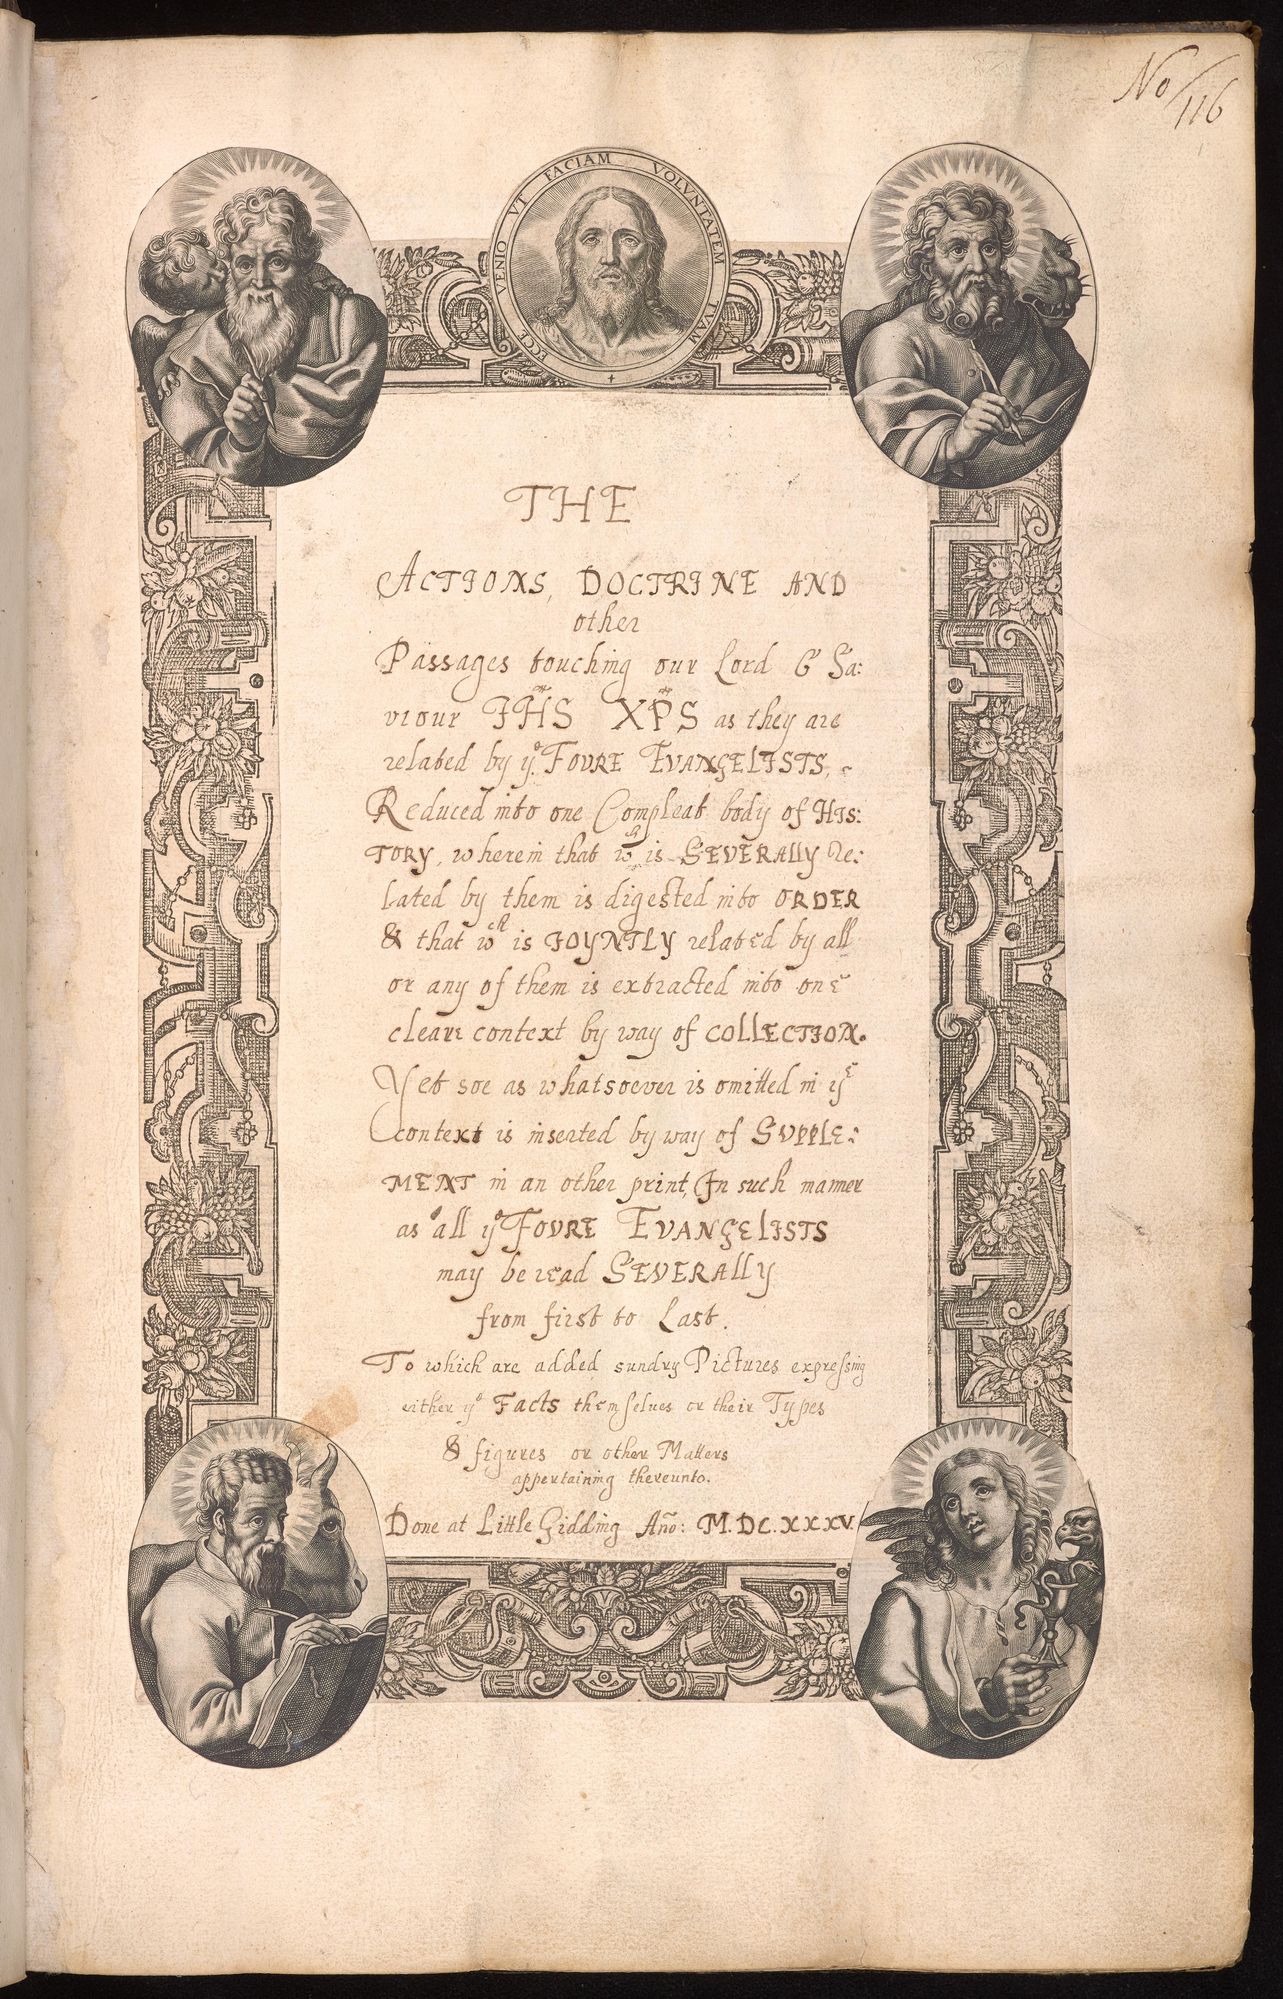 No/116
ECCE VENIO VT FACIAM VOLVNTATEM TVAM
THE
ACTIONS, DOCTRINE AND
other
Passages touching our Lord & Sa:
viour JHS XPS as they are
related by yͤ FOURE EVANGELISTS,
Reduced into one Compleat body of HIS:
TORY, wherein that wᶜʰ is SEVERALLY Re:
lated by them is digested into ORDER
& that wᶜʰ is JOYNTLY related by all
or any of them is extracted into one
cleare context by way of COLLECTION.
Yet soe as whatsoever is omitted in yͤ
Context is inserted by way of SUPPLE:
MENT in an other print, In such manner
as all yͤ FOURE EVANGELISTS
may be read SEVERALLY
from first to Last.
To which are added sundry Pictures expressing
either yͤ Facts themselues or their Types
& figures or other Matters
appertaining thereunto.
Done at Little Gidding Año: M.DC.XXXV.